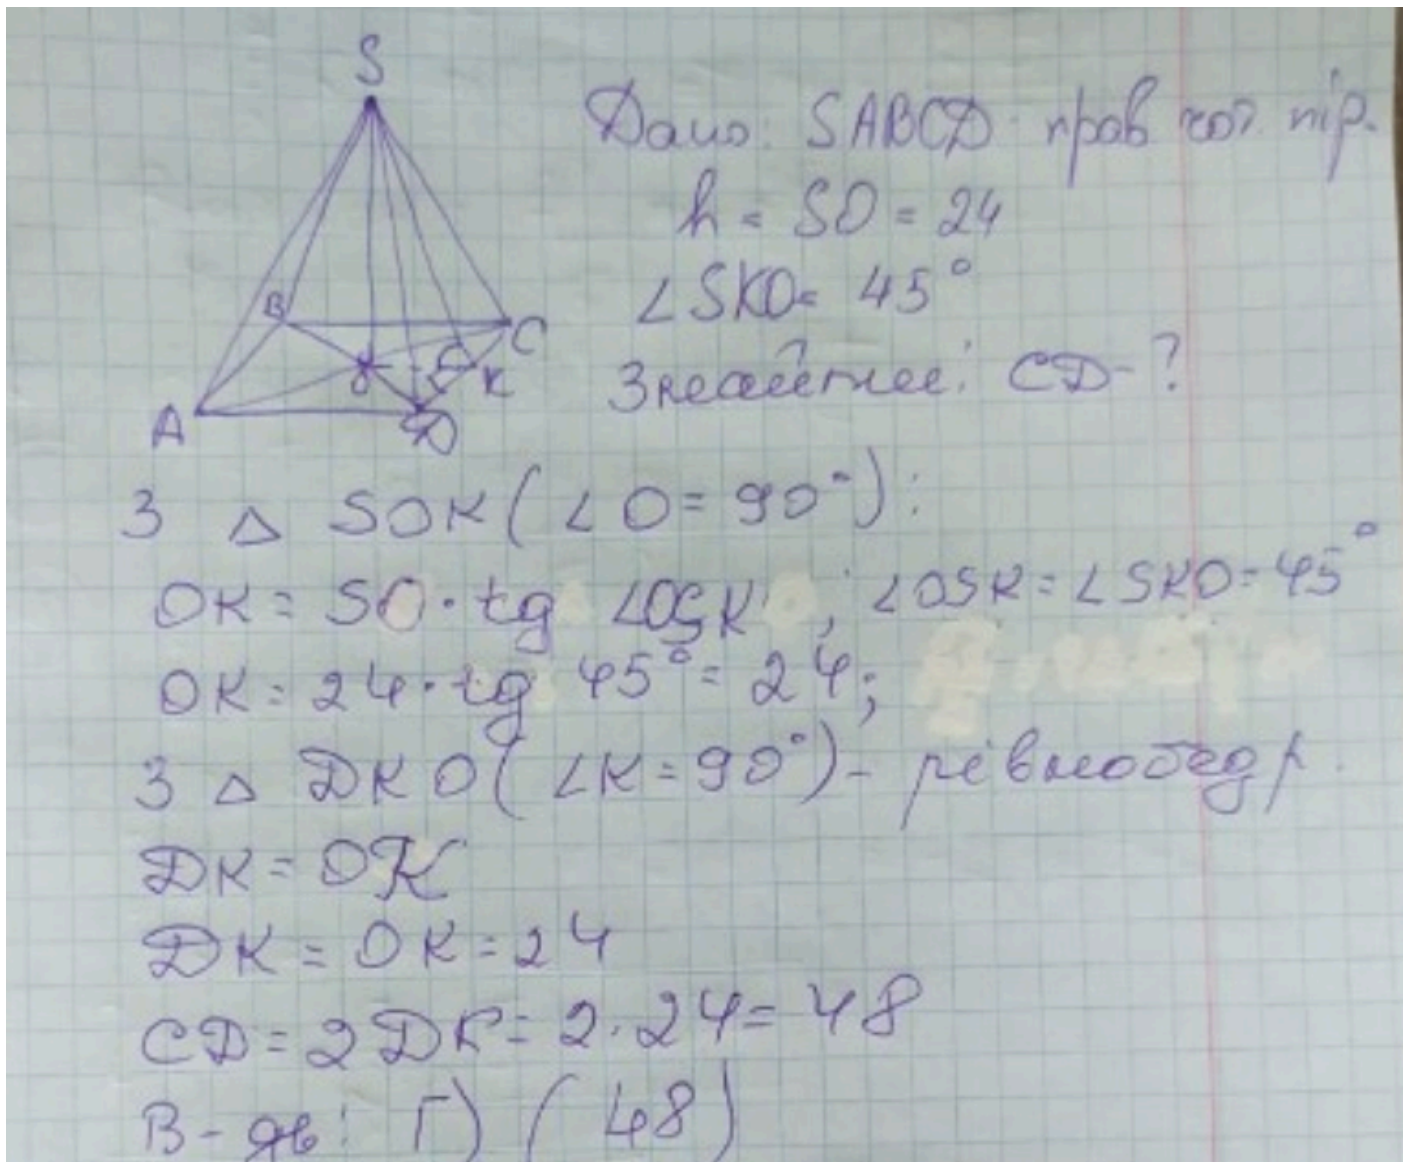 S
Дано: SABCD прав чот. пір.
h = SO = 24
∠SKO = 45°
Знайти: CD - ?
B
C
O
K
A
D
З △ SOK (∠O = 90°):
OK = SO · tg ∠OSK ; ∠OSK = ∠SKO = 45°
OK = 24 · tg 45° = 24;
З △ DKO (∠K = 90°) - рівнобедр.
DK = OK
DK = OK = 24
CD = 2DK = 2 · 24 = 48
В-дь: Г) (48)